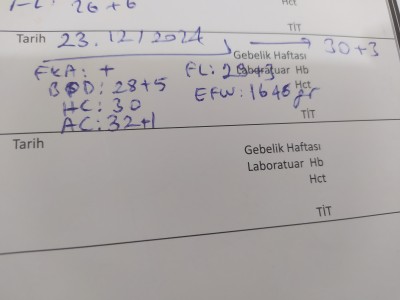 FL: 26+6
Hct
TİT
Tarih 23.12/2024
Gebelik Haftası 30+3
FKA: + FL: 28+3 Laboratuar Hb
BPD: 28+5 EFW: 1646 gr Hct
HC: 30
AC: 32+1 TİT
Tarih
Gebelik Haftası
Laboratuar Hb
Hct
TİT